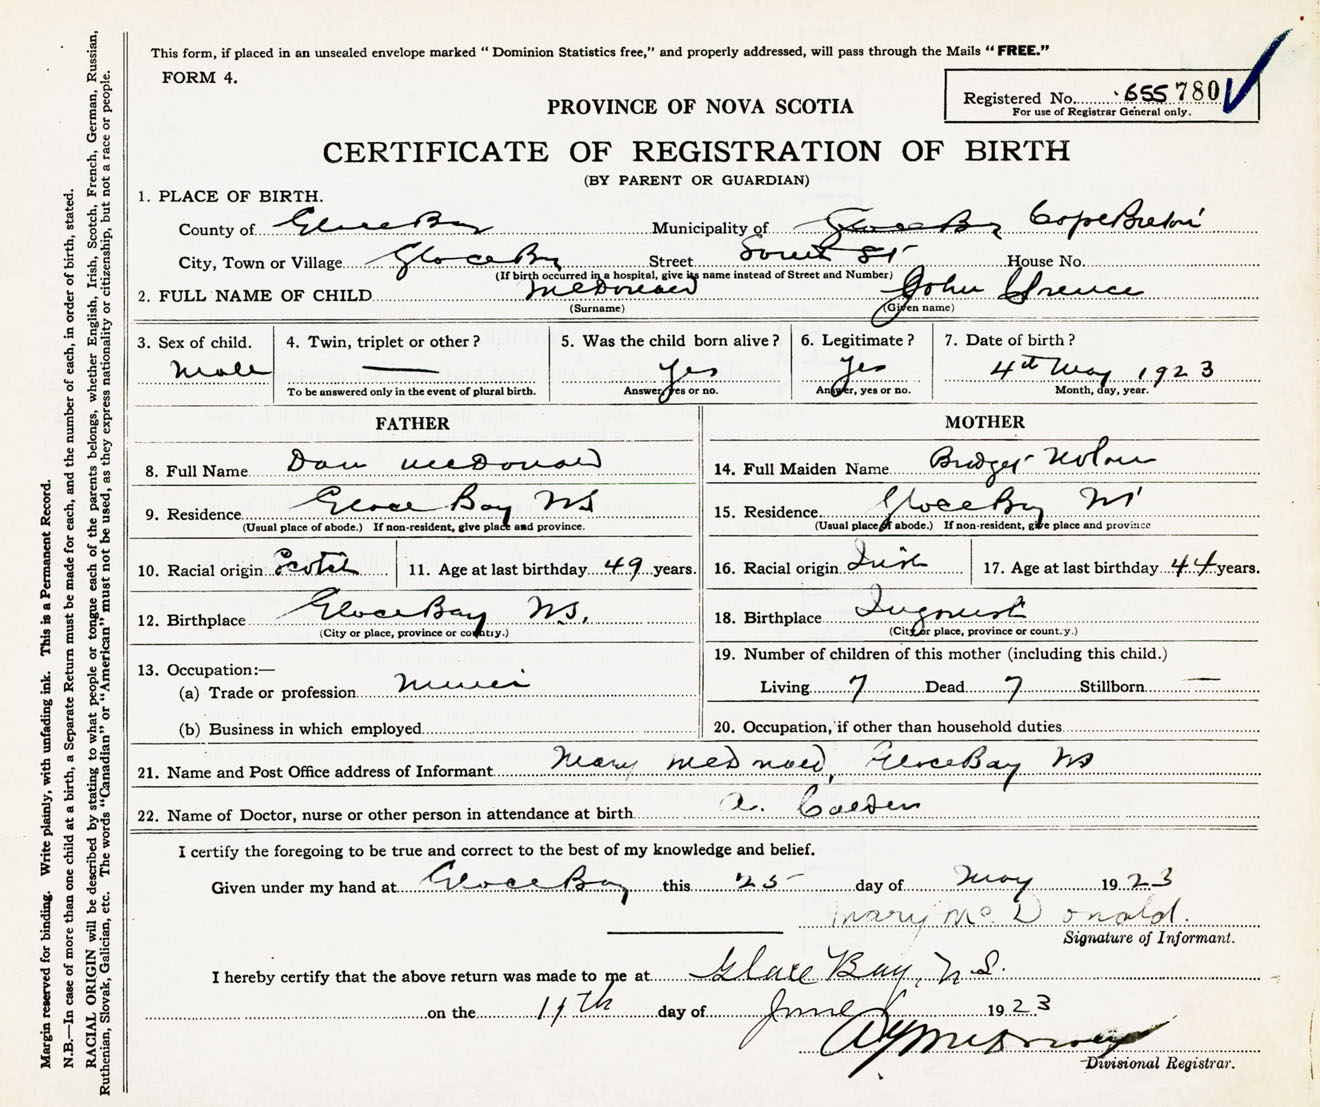 This form, if placed in an unsealed envelope marked " Dominion Statistics free," and properly addressed, will pass through the Mails "FREE."
FORM 4.
Registered No. 655780
For use of Registrar General only.
PROVINCE OF NOVA SCOTIA
CERTIFICATE OF REGISTRATION OF BIRTH
(BY PARENT OR GUARDIAN)
1. PLACE OF BIRTH.
County of Glace Bay Municipality of Glace Bay Cape Breton
City, Town or Village Glace Bay Street South St House No.
(If birth occurred in a hospital, give its name instead of Street and Number)
2. FULL NAME OF CHILD McDonald John
(Surname) (Given name)
3. Sex of child. 4. Twin, triplet or other? 5. Was the child born alive? 6. Legitimate? 7. Date of birth?
Male — Yes Yes 4th May 1923
To be answered only in the event of plural birth. Answer, yes or no. Answer, yes or no. Month, day, year.
FATHER
8. Full Name Dan McDonald
9. Residence Glace Bay NS
(Usual place of abode.) If non-resident, give place and province.
10. Racial origin Scotch 11. Age at last birthday 49 years.
12. Birthplace Glace Bay N.S.
(City or place, province or country.)
13. Occupation:—
(a) Trade or profession Miner
(b) Business in which employed
MOTHER
14. Full Maiden Name Bridget Nolan
15. Residence Glace Bay NS
(Usual place of abode.) If non-resident, give place and province
16. Racial origin Irish 17. Age at last birthday 44 years.
18. Birthplace Ingonish
(City or place, province or country.)
19. Number of children of this mother (including this child.)
Living 7 Dead 7 Stillborn —
20. Occupation, if other than household duties
21. Name and Post Office address of Informant Mary McDonald, Glace Bay NS
22. Name of Doctor, nurse or other person in attendance at birth A.
I certify the foregoing to be true and correct to the best of my knowledge and belief.
Given under my hand at Glace Bay this 25 day of May 1923
Mary McDonald.
Signature of Informant.
I hereby certify that the above return was made to me at Glace Bay, N.S.
on the 11th day of June 1923
Divisional Registrar.
Margin reserved for binding. Write plainly, with unfading ink. This is a Permanent Record.
N.B.—In case of more than one child at a birth, a Separate Return must be made for each, and the number of each, in order of birth, stated.
RACIAL ORIGIN will be described by stating to what people or tongue each of the parents belongs, whether English, Irish, Scotch, French, German, Russian,
Ruthenian, Slovak, Galician, etc. The words "Canadian" or "American" must not be used, as they express nationality or citizenship, but not a race or people.